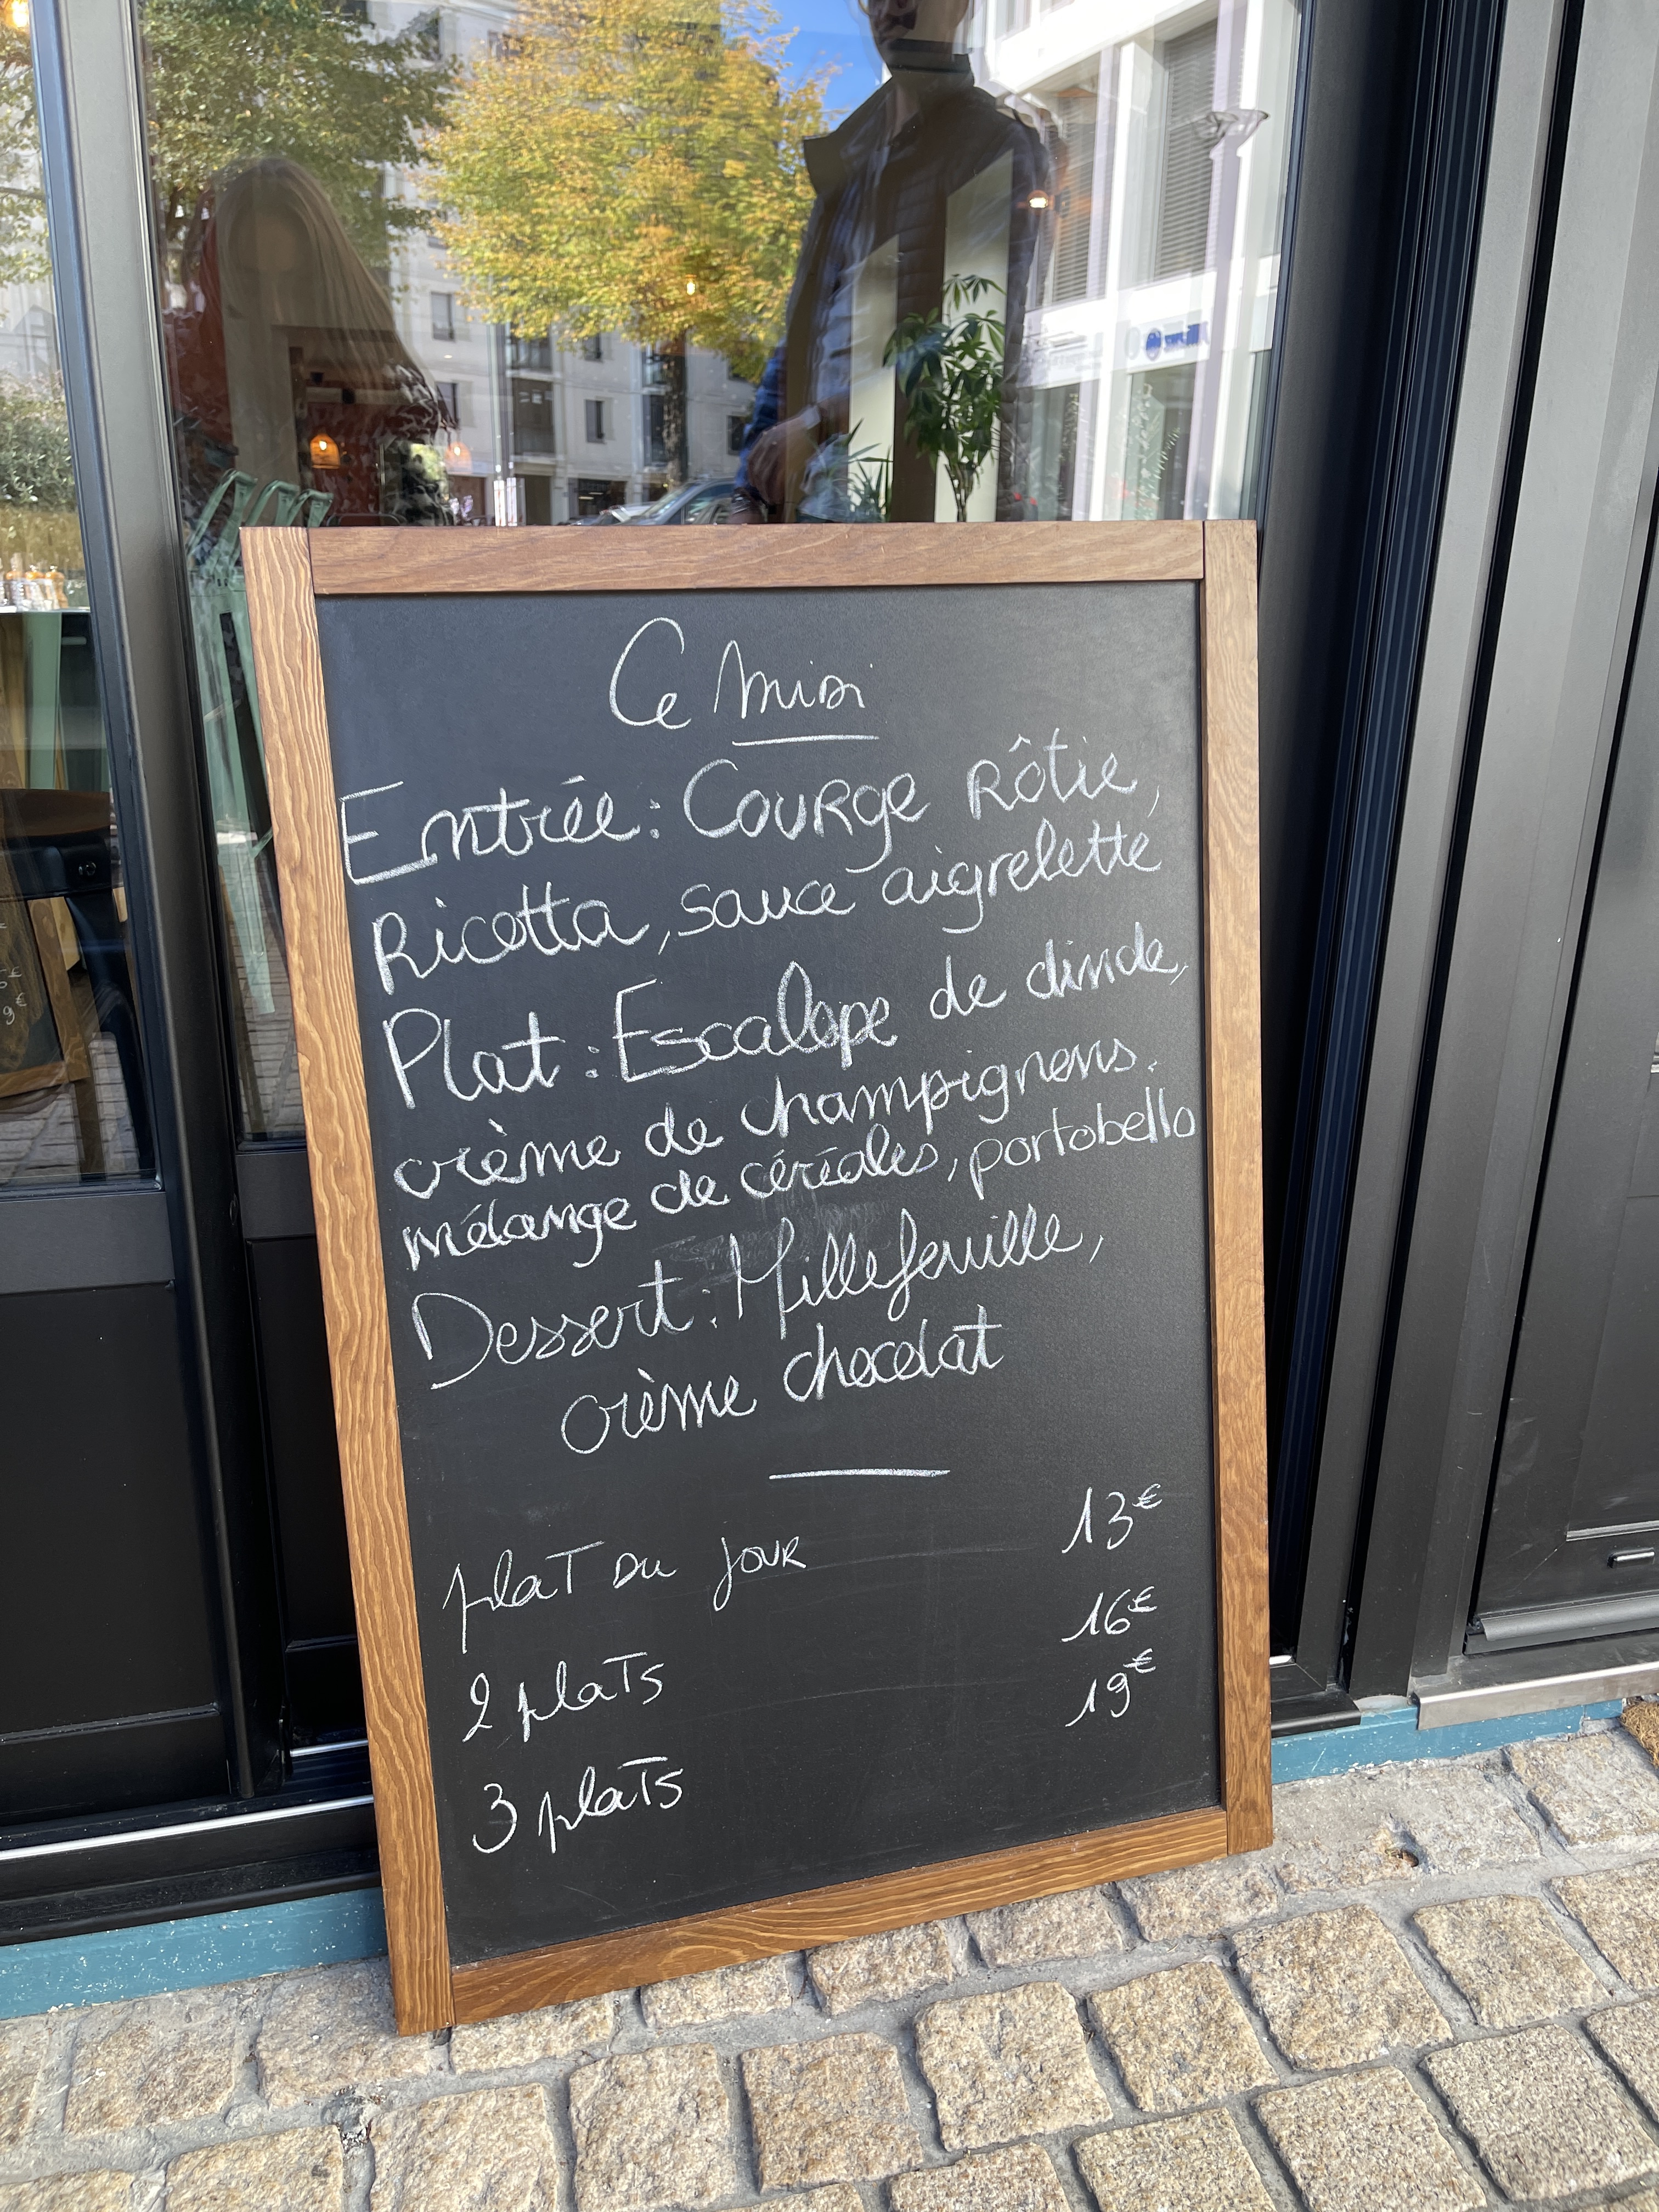 Ce midi
Entrée : Courge Rôtie,
Ricotta, sauce aigrelette
Plat : Escalope de dinde,
crème de champignons.
mélange de céréales, portobello
Dessert : Millefeuille,
crème chocolat
plat du jour 13€
2 plats 16€
3 plats 19€